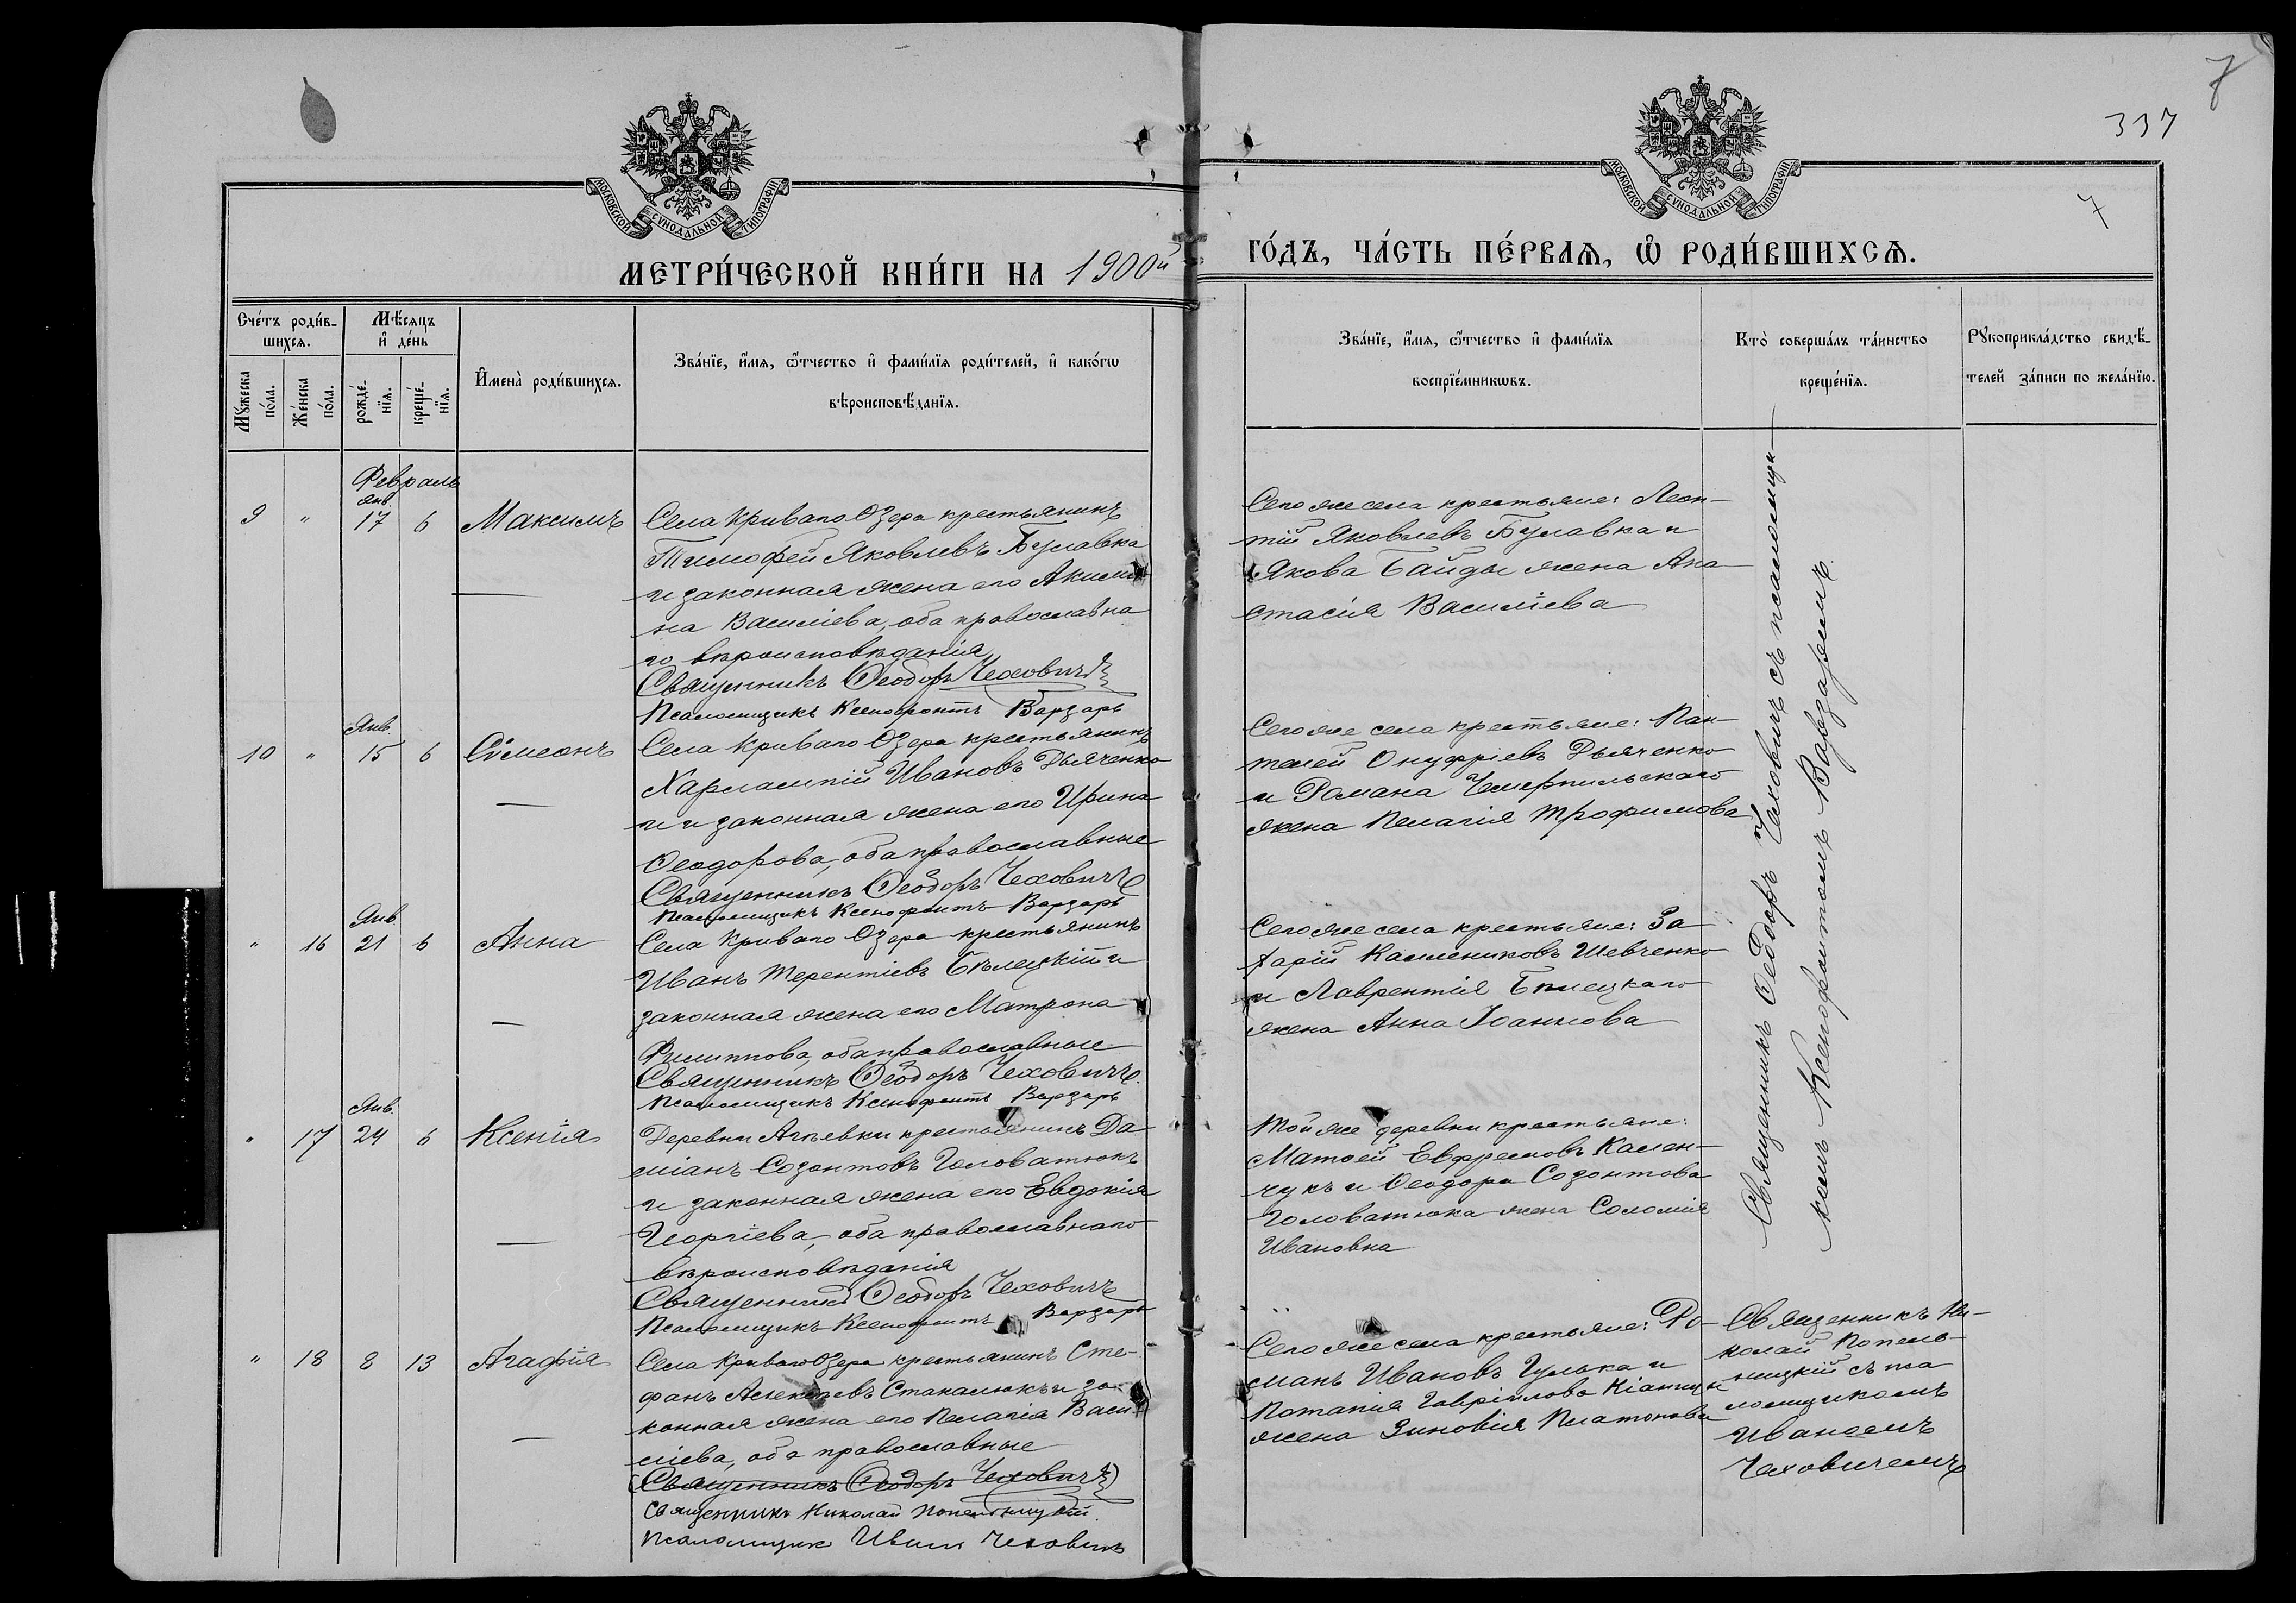 7
337
7
МОСКОВСКОЙ СѴНОДАЛЬНОЙ ТИПОГРАФІИ
МОСКОВСКОЙ СѴНОДАЛЬНОЙ ТИПОГРАФІИ
МЕТРИ́ЧЕСКОЙ КНИ́ГИ НА 1900й
ГО́ДЪ, ЧА́СТЬ ПЕ́РВАѦ, Ѿ РОДИ́ВШИХСѦ.
Сче́тъ роди́в-
шихсѧ.
Мѣ́сяцъ
и҆ де́нь
Мꙋ́жеска
по́ла.
Же́нска
по́ла.
рожде́-
нїѧ.
креще́-
нїѧ.
И҆мена̀ роди́вшихсѧ.
Зва́нїе, и҆́мѧ, ѻ҆́тчество и҆ фами́лїѧ роди́телей, и҆ како́гѡ
вѣроисповѣ́данїѧ.
Зва́нїе, и҆́мѧ, ѻ҆́тчество и҆ фами́лїѧ
воспрїе́мникѡвъ.
Кто̀ соверша́лъ та́инство
креще́нїѧ.
Рꙋкоприкла́дство свидѣ́-
телей за́писи по жела́нїю.
Февраль
Янв.
9 " 17 6 Максимъ
Села Криваго Озера крестьянинъ
Тимофей Яковлевъ Булавка
и законная жена его Акили-
на Василіева, оба православна
го вѣроисповѣданія
Священникъ Ѳеодоръ Чеховичъ
Псаломщикъ Ксенофонтъ Варзарь
Сего же села крестьяне: Леон-
тій Яковлевъ Булавка и
Якова Байды жена Ана-
стасія Василіева
Янв.
10 " 15 6 Сѵмеонъ
Села Криваго Озера крестьянинъ
Харлампій Ивановъ Дьяченко
и законная жена его Ирина
Ѳеодорова, оба православные
Священникъ Ѳеодоръ Чеховичъ
Псаломщикъ Ксенофонтъ Варзарь
Сего же села крестьяне: Пан-
телей Онуфріевъ Дьяченко
и Романа Чемерпильскаго
жена Пелагія Трофимова
Янв.
" 16 21 6 Анна
Села Криваго Озера крестьянинъ
Иванъ Терентіевъ Бѣлецкій и
законная жена его Матрона
Филиппова, оба православные
Священникъ Ѳеодоръ Чеховичъ
Псаломщикъ Ксенофонтъ Варзарь
Сего же села крестьяне: За
харій Калениковъ Шевченко
и Лаврентія Бѣлецкаго
жена Анна Іоаннова
Янв.
" 17 24 6 Ксенія
Деревни Агѣевки крестьянинъ Да
міанъ Созонтовъ Головатюкъ
и законная жена его Евдокія
Георгіева, оба православнаго
вѣроисповѣданія
Священникъ Ѳеодоръ Чеховичъ
Псаломщикъ Ксенофонтъ Варзарь
Той же деревни крестьяне:
Матѳей Евфремовъ Камен-
чукъ и Ѳеодора Созонтова
Головатюка жена Соломія
Ивановна
Священникъ Ѳеодоръ Чеховичъ съ псаломщи-
комъ Ксенофонтомъ Варзаремъ.
" 18 8 13 Агафія
Села Криваго Озера крестьянинъ Сте-
фанъ Алексѣевъ Стакалюкъ и за-
конная жена его Пелагія Васи-
ліева, оба православные
(Священникъ Ѳеодоръ Чеховичъ)
Священникъ Николай Попельницкій.
Псаломщикъ Иванъ Чеховичъ
Сего же села крестьяне: Ро-
манъ Ивановъ Гулька и
Потапія Гавріилова
жена Зиновія Платонова
Священникъ Ни-
колай Попель-
ницкій съ пса
ломщикомъ
Иваномъ
Чеховичемъ